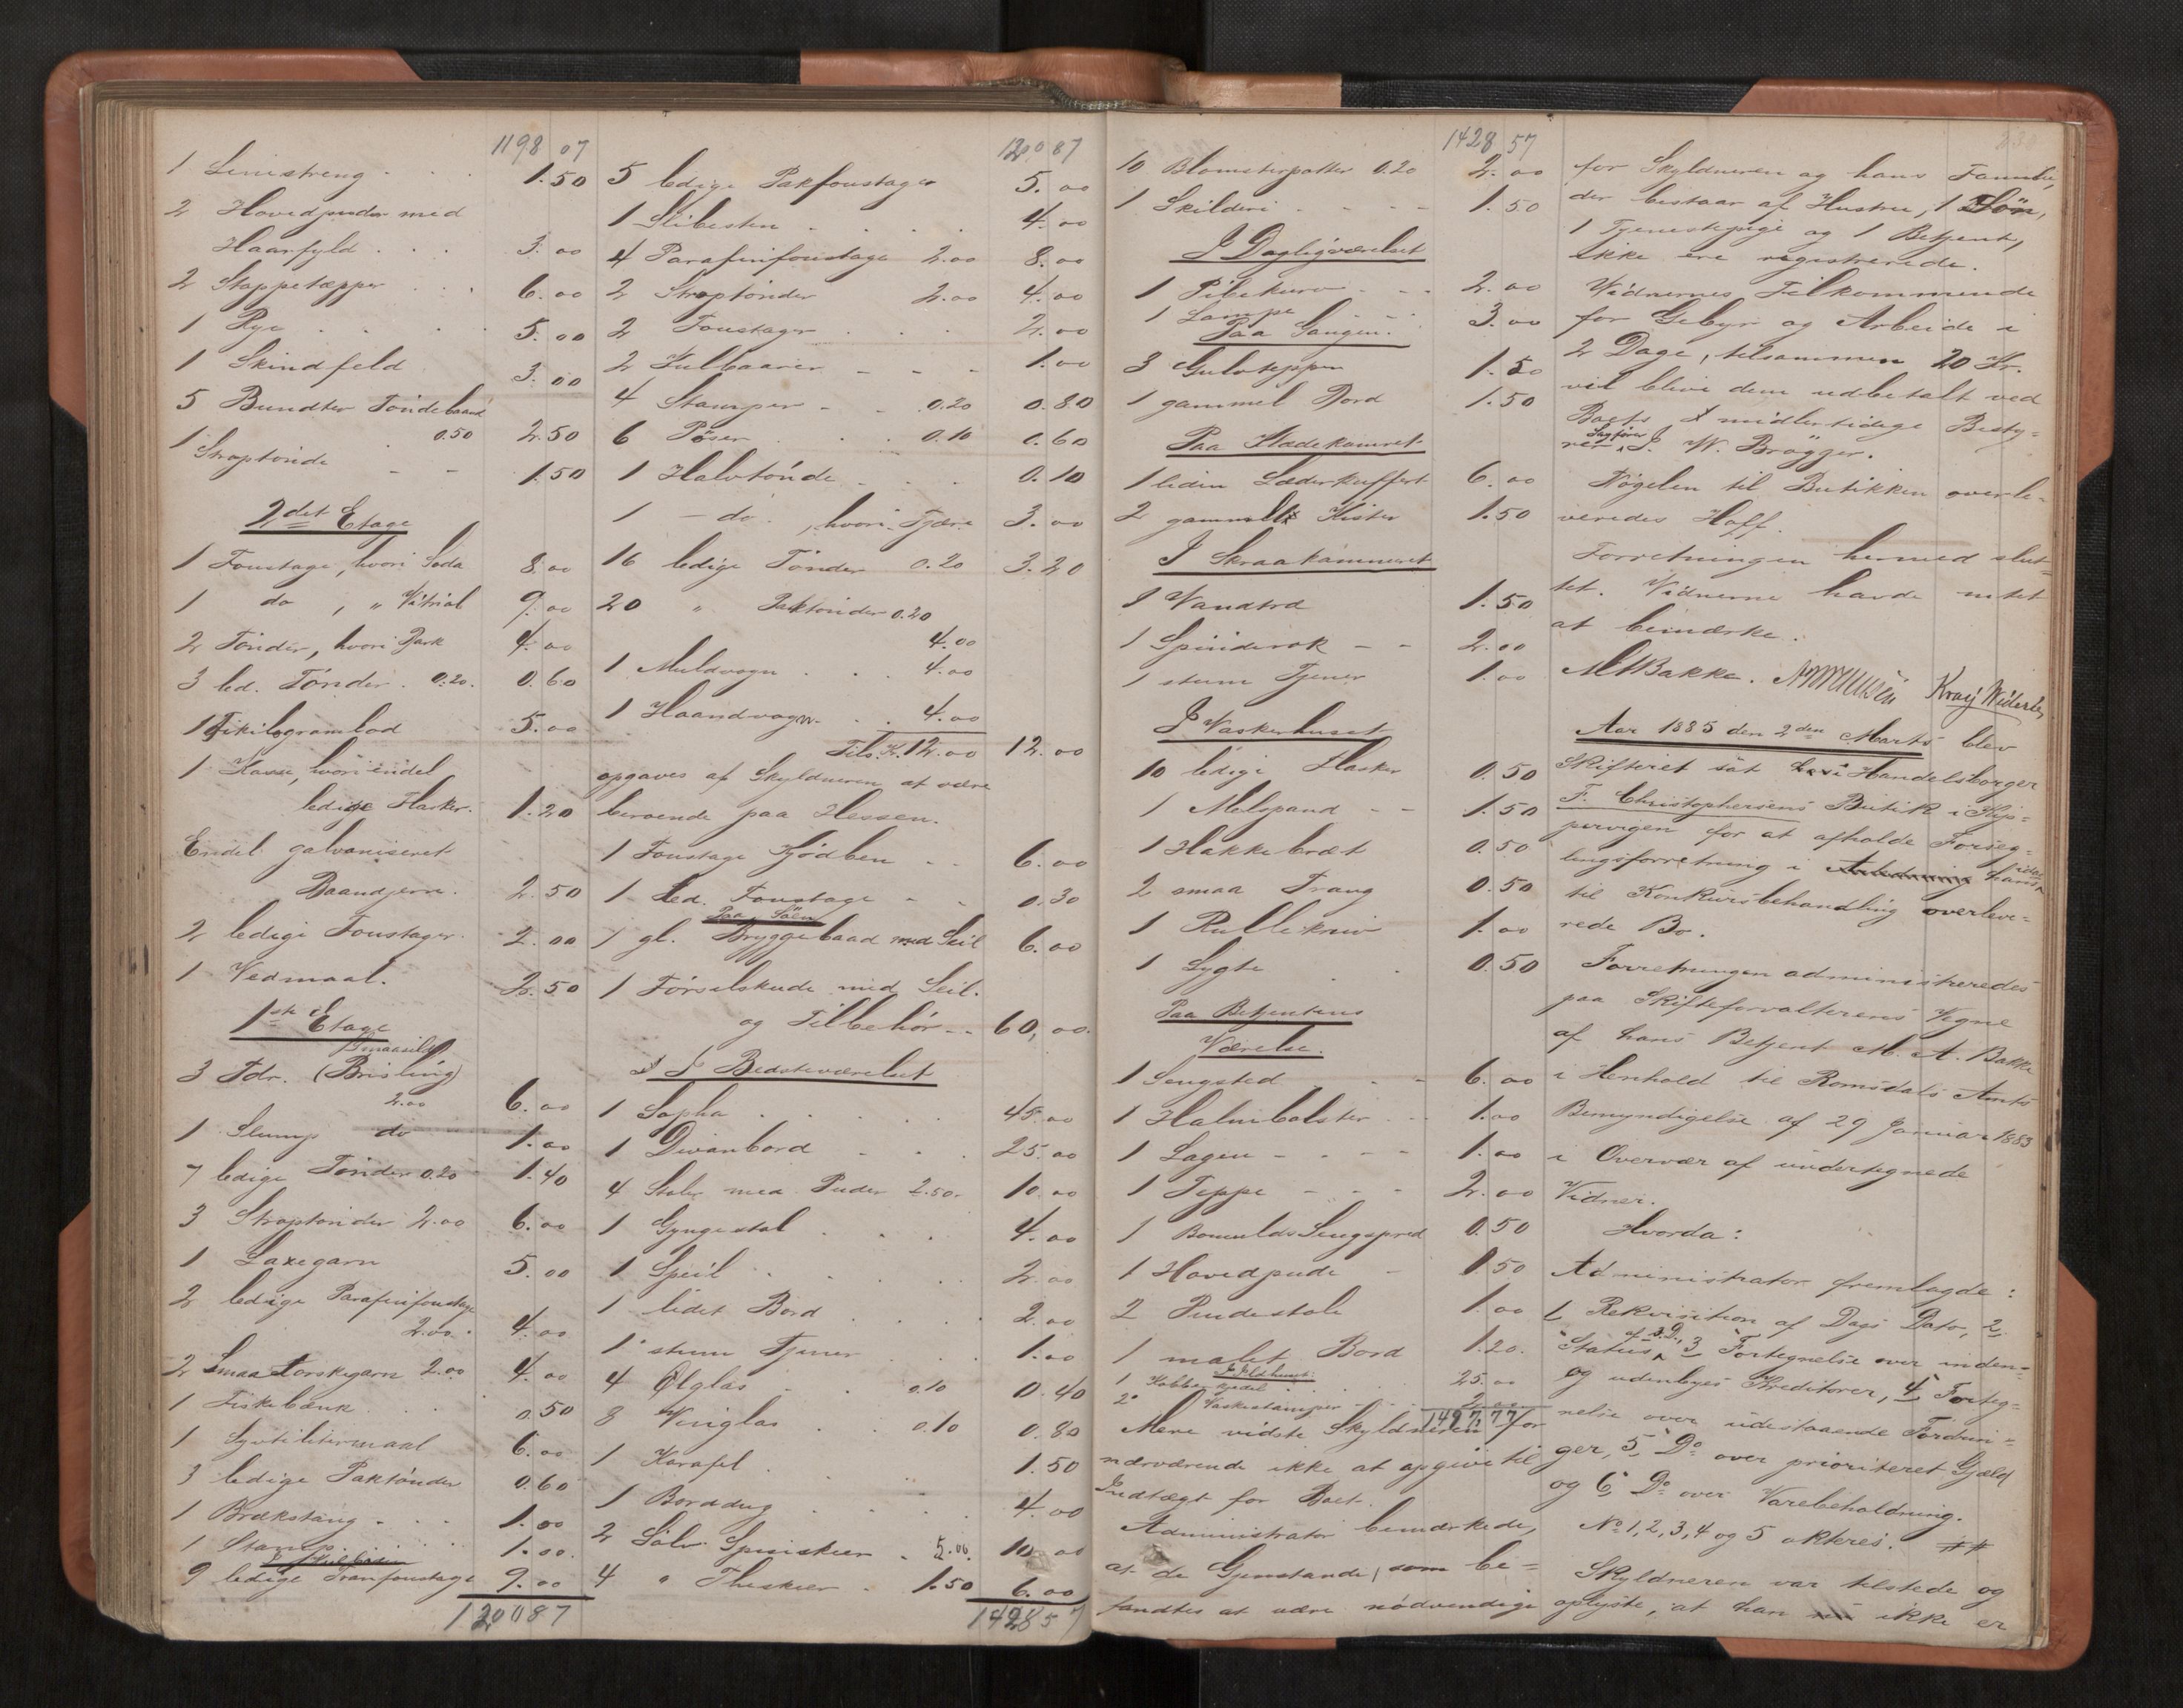 1198 07
1 Linestreng . . . 1.50
2 Hovedpuder med
Haarfyld . . . 3.00
2 Stoppetæpper . . . 6.00
1 Rye . . . 5.00
1 Skindfeld 3.00
5 Bundter Töndebaand
0.50 2.50
1 Straptönde - - 1.50
2det Etage
1 Foustage, hvori Soda 8.00
1 do , " Vitriol 9.00
2 Tönder, hvori Bark 4.00
3 led. Tönder . 0.20. 0.60
1 Fikilogramlod 5.00
1 Kasse, hvori endel
ledige Flasker. 1.20
Endel galvaniseret
Baandjern. 2.50
2 ledige Foustager. 2.00
1 Vedmaal. 2.50
1ste Etage
Smaasild
3 Tdr. (Brisling)
2.00 6.00
1 Slump do 1.00
7 ledige Tönder 0.20 1.40
3 Straptönder 2.00 6.00
1 Laxegarn 5.00
2 ledige Parafinfoustage
2.00. 4.00
2 Smaa Torskegarn 2.00 4.00
1 Fiskebænk . . 0.50
1 Syvtilitermaal 6.00
3 ledige Paktönder 0.60
1 Brækstang . . . 1.00
1 Stamp . . . . 1.00.
9 ledige Tranfoustage 9.00
1200 87
1200 87
5 ledige Pakfoustager 5.00
1 Slibesten . . . . 4.00
4 Parafinfoustage 2.00 8.00
2 Straptönder 2.00 4.00
2 Foustager . . . 2.00
2 Hulbaarer - - - 1.00
4 Stamper - - 0.20 0.80
6 Pöser . . . 0.10 0.60
1 Halvtönde . . . 0.10
1 - do . , hvori Tjære 3.00
16 ledige Tönder 0.20 3.20
20 " Paktönder 0.20
4.00
1 Muldvogn . . . 4.00
1 Haandvogn . . 4.00
Tils. K. 12.00 12.00
opgaves af Skyldneren at være
beroende paa Hessen.
1 Foustage Kjödben - - 6.00
1 led. Foustage - - 0.30
Paa Söen
1 gl. Bryggebaad med Seil 6.00
1 Förselskude med Seil.
og Tilbehör -- 60,00.
I Bedsteværelset
1 Sopha . . . . . 45.00
1 Divanbord - . . 25.00
4 Stoler med Puder 2.50. 10.00
1 Gyngestol . . . 4.00
1 Speil . . . . . 2.00
1 lidet Bord . . . . 2.00
1 stum Tjener . . . 1.00
4 Ölglas . . 0.10 0.40
8 Vinglas . . 0.10 0.80
1 Karafel . . . 1.50
1 Borddug . . . . 4.00
2 Sölv Spiseskeer . 5.00. 10.00
4 " Theskeer . 1.50 6.00
1428 57
1428 57
10 Blomsterpotter 0.20 2.00
1 Skilderi - - - - 1.50
I Dagligværelset
1 Pibekurv - - - 2.00
1 Lampe - - 3.00
Paa Gangen.
3 Gulvtepper 1.50
1 gammel Bord 1.50
Paa Klædekameret
1 liden Læderkuffert 6.00
2 gammelt Kister 1.50
I Skraakammeret
1 Vandtrd 1.50
1 Spinderok - - 2.00
1 stum Tjener 1.00
I Vaskerhuset
10 ledige Flasker 0.50
1 Melspand - - 1.50
1 Hakkebræt 0.50
2 smaa Traug 0.50
1 Rullekniv 1.00
1 Lygte . . 0.50
Paa Betjentens
Værelse.
1 Sengsted - - 6.00
1 Halmbolster - - 1.00
1 Lagen - - - - 1.00
1 Teppe - - - 2.00
1 Bomulds Sengspred 0.50
1 Hovedpude - 1.50
2 Pindestole 1.00
1 malet Bord 1.20.
I Ildhuset:
1 Kobberkjedel . . . . 25.00
2 Vaskestamper - - - 2.00
1497.77
Mere vidste Skyldneren for
nærværende ikke at opgive til
Indtægt for Boet.
Administrator bemærkede,
at de Gjenstande, som be=
fandtes at være nödvendige
for Skyldneren og hans Familie,
der bestaar af Hustru, 1 Sön,
1 Tjenestepige og 1 Betjent,
ikke ere registrerede.
Vidnernes Tilkommende
for Gebyr og Arbeide i
2 Dage, tilsammen 20 Kr.
vil blive dem udbetalt ved
Boets midlertidige Besty=
rer, Sagförer J. W. Brögger.
Nögelen til Butikken overle=
veredes Hoff.
Forretningen hermed slut=
tet. Vidnerne havde intet
at bemærke.
M A Bakke.
Aar 1885 den 2den Marts blev
Skifteret sat hos i Handelsborger
F. Christophersens Butik i Kip=
pervigen for at afholde Forseg=
lingsforretning i hans idag
til Konkursbehandling overleve=
rede Bo.
Forretningen administreredes
paa Skifteforvalterens Vegne
af hans Betjent M. A. Bakke
i Henhold til Romsdals Amts
Bemyndigelse af 29 Januar 1883
i Overvær af undertegnede
Vidner.
Hvorda:
Administrator fremlagde:
1, Rekvisition af Dags Dato, 2,
Status af s. D., 3, Fortegnelse over inden=
og udenbyes Kreditorer, 4, Forteg=
nelse over udestaaende Fordrin=
ger, 5, Do over prioriteret Gjæld
og 6, Do over Varebeholdning.
No 1, 2, 3, 4 og 5 akteres. ##
Skyldneren var tilstede og
oplyste, at han ikke er